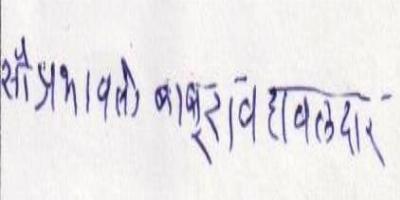 सौ प्रभावती बाबूराव हावलदार